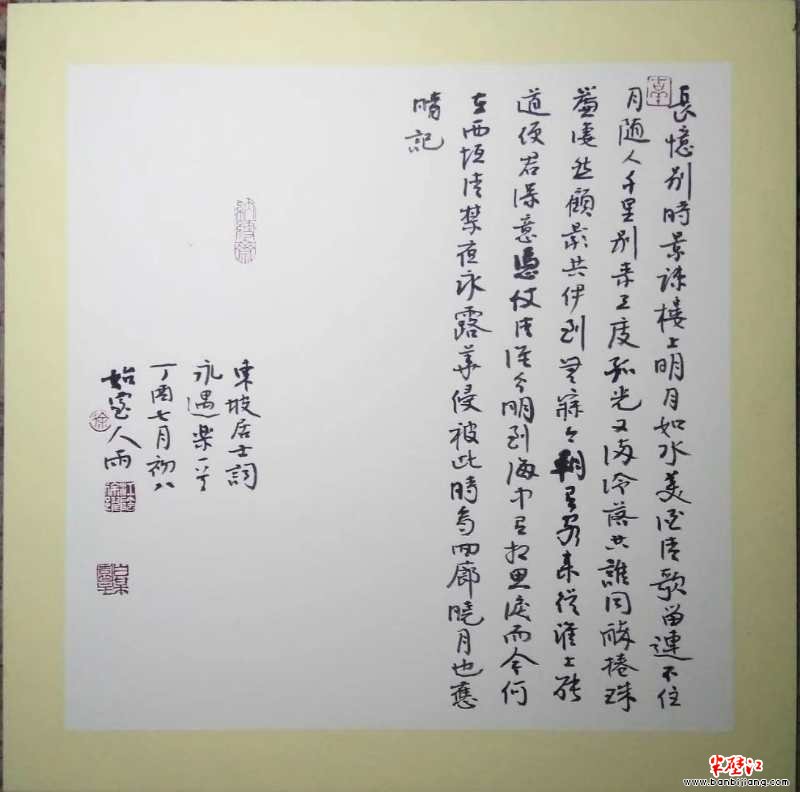 長憶别時景疎樓上明月如水美酒清歌留連不住
月随人千里别来三度孤光又満冷落共誰同醉捲珠
簾凄然顧影共伊到無寐今朝有客来從淮上能
道使君深意憑仗清淮分明到海中有相思淚而今何
在西垣清禁夜永露華侵被此時看回廊曉月也應
暗記
東坡居士詞
永遇樂一首
丁酉七月初八
人雨
徐
半壁江
www.banbijiang.com